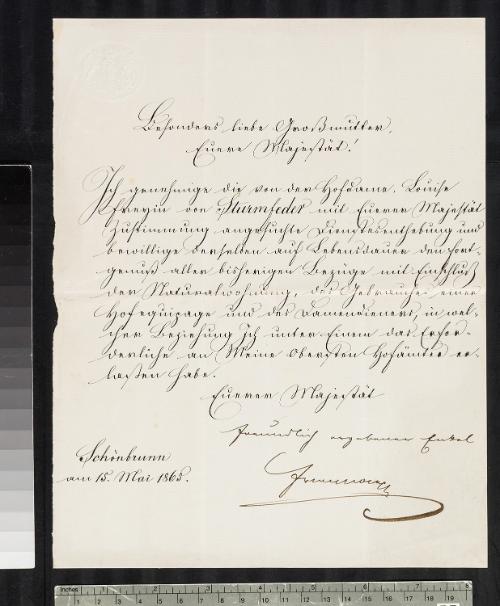 Besonders liebe Großmutter,
Euere Majestät!
Ich genehmige die von der Hofdame, Louise
Freyin von Sturmfeder mit Euerer Majestät
Zustimmung angesuchte Dienstesenthebung und
bewillige derselben auf Lebensdauer den Fort-
genuß aller bisherigen Bezüge mit Einschluß
der Naturalwohnung, des Gebrauches einer
Hofequipage und des Damendieners, in wel-
cher Beziehung Ich unter Einem das Erfor-
derliche an Meine Obersten Hofämter er-
laßen habe.
Euerer Majestät
freundlich ergebener Enkel
Schönbrunn
am 15. Mai 1865.
inches 1 2 3 4 5 6 7 8
1 2 3 4 5 6 7 8 9 10 11 12 13 14 15 16 17 18 19